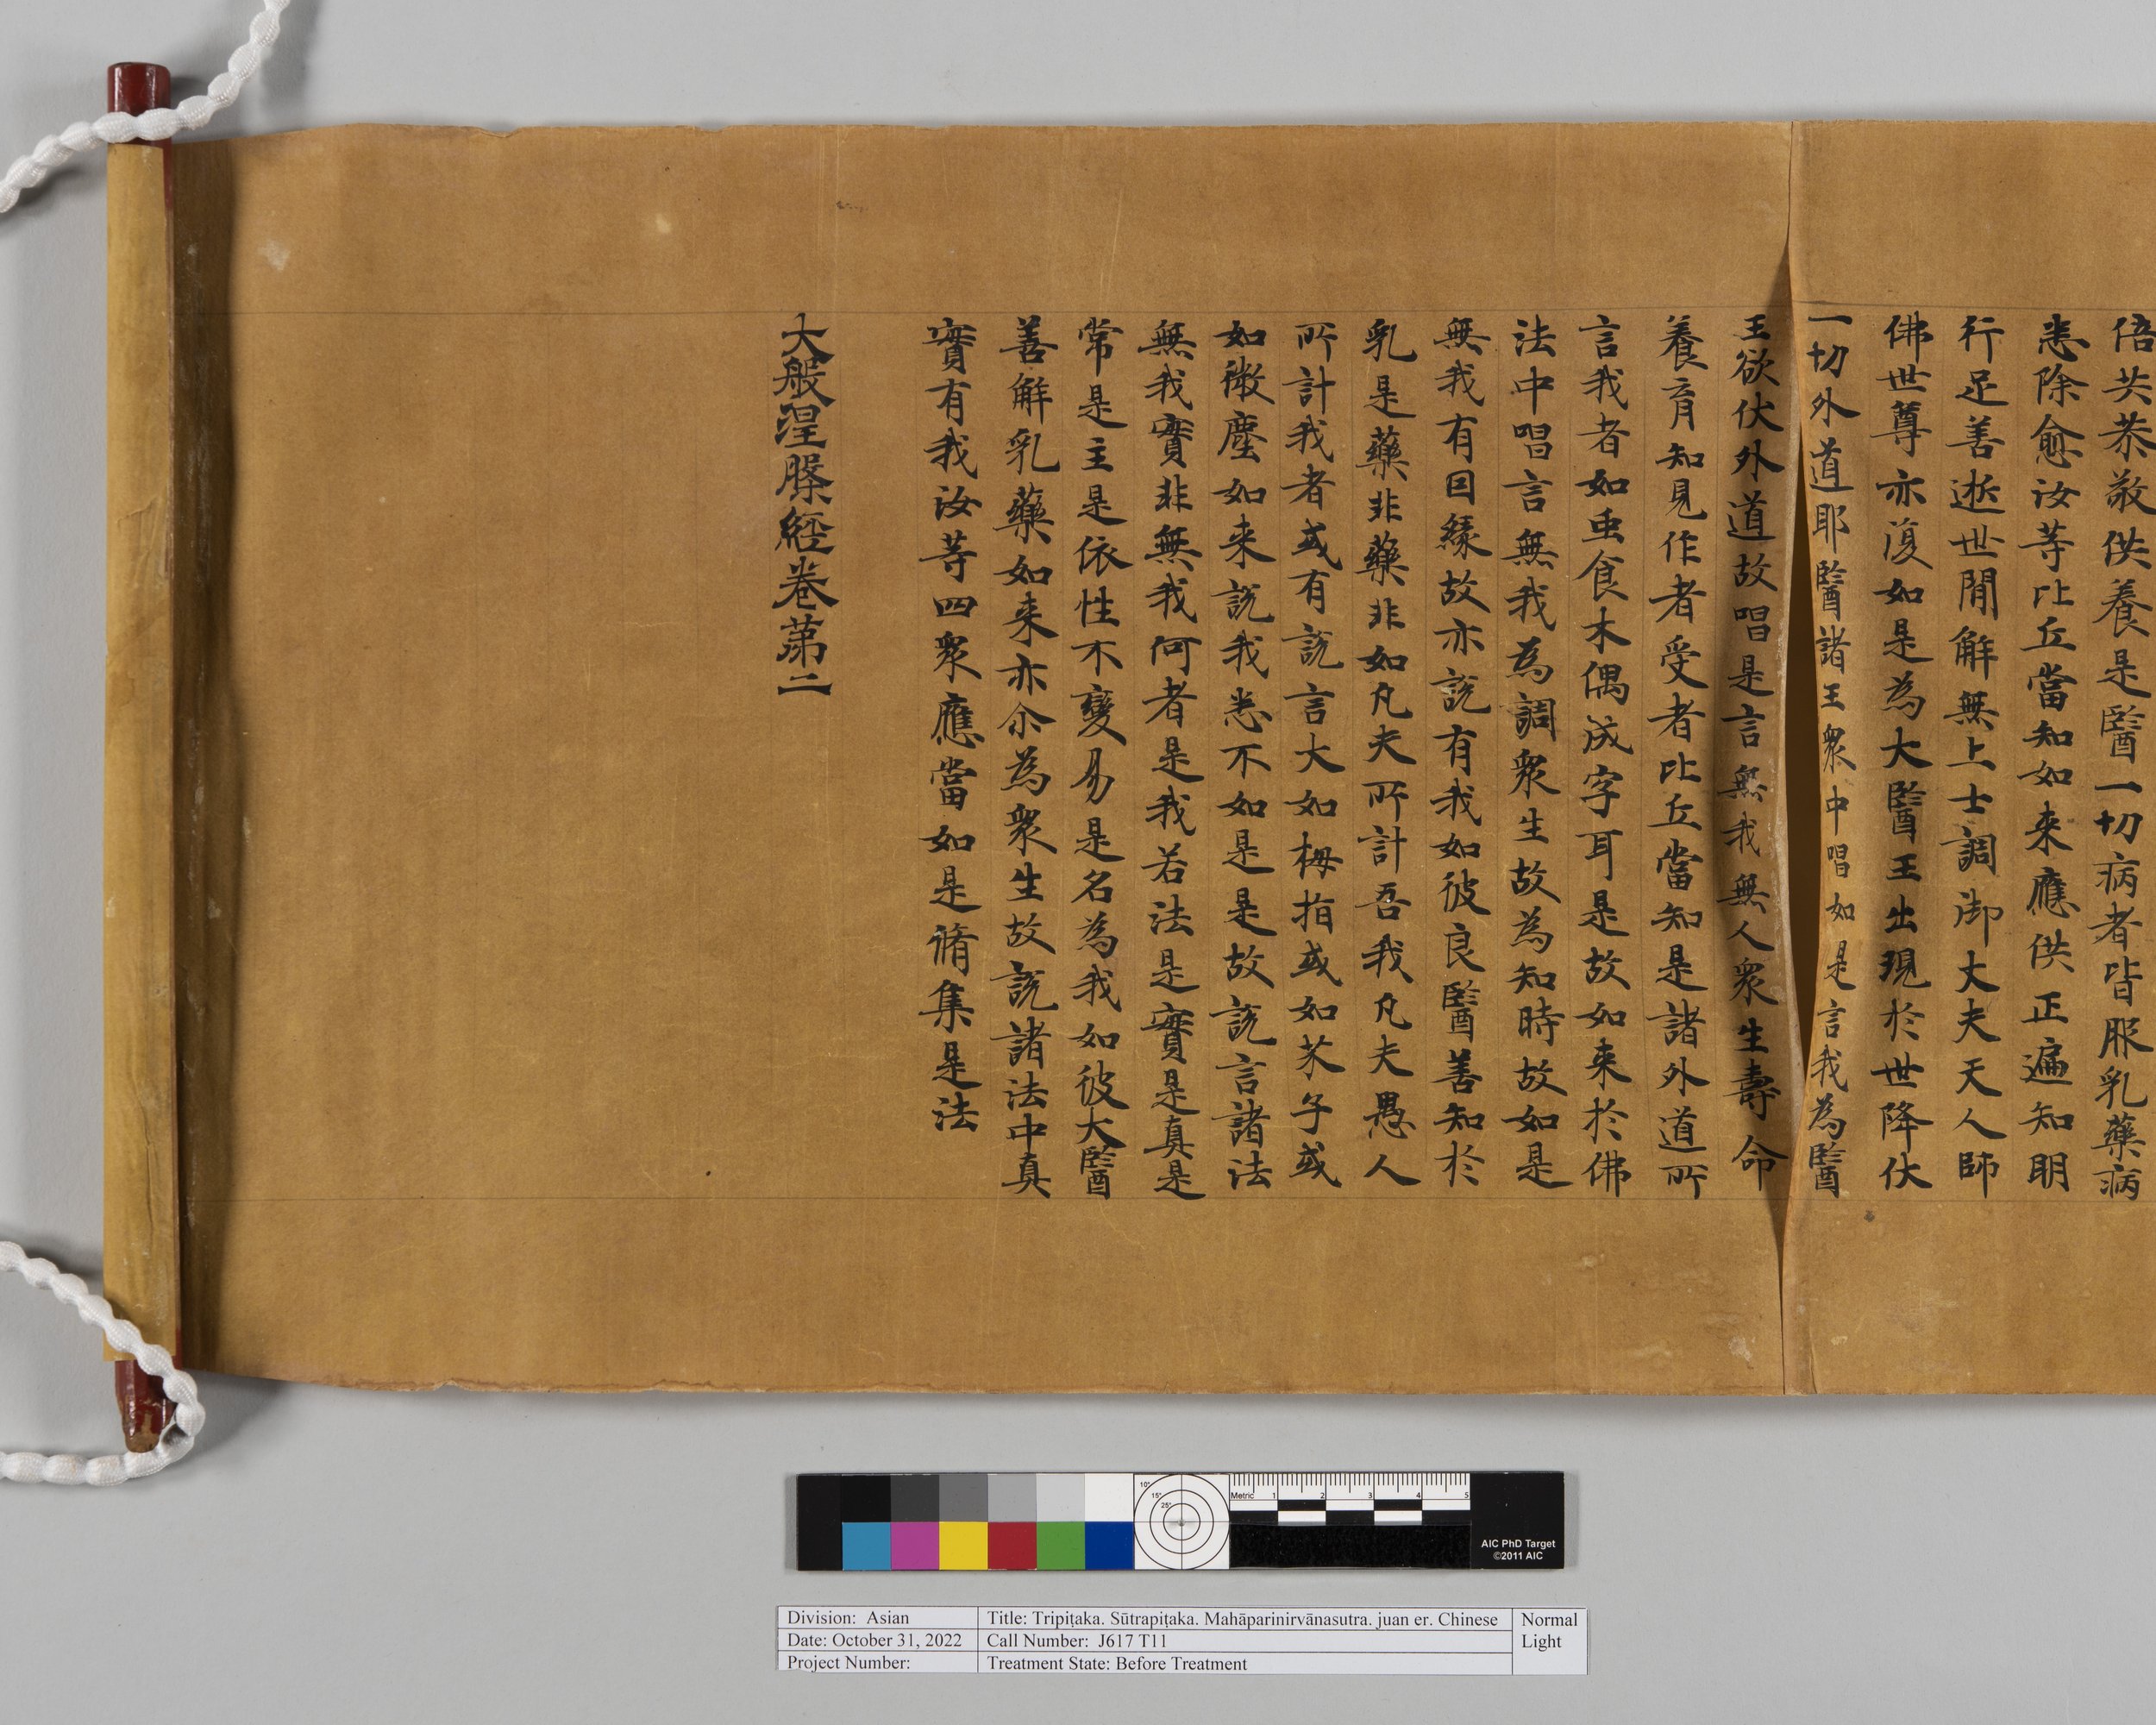 倍共恭敬供養是醫一切病者皆服乳藥病
悉除愈汝等比丘當知如来應供正遍知明
行足善逝世間解無上士調御丈夫天人師
佛世尊亦復如是為大醫王出現於世降伏
一切外道耶醫諸王衆中唱如是言我為醫
王欲伏外道故唱是言無我無人衆生壽命
養育知見作者受者比丘當知是諸外道所
言我者如虫食木偶成字耳是故如来於佛
法中唱言無我為調衆生故為知時故如是
無我有因緣故亦說有我如彼良醫善知於
乳是藥非藥非如凡夫所計吾我凡夫愚人
所計我者或有說言大如栂指或如芥子或
如微塵如来說我悉不如是是故說言諸法
無我實非無我何者是我若法是實是真是
常是主是依性不變易是名為我如彼大醫
善解乳藥如来亦尒為衆生故說諸法中真
實有我汝等四衆應當如是脩集是法
大般涅槃經卷第二
10°
15°
25°
Metric 1 2 3 4 5
AIC PhD Target
©2011 AIC
Division: Asian
Title: Tripiṭaka. Sūtrapiṭaka. Mahāparinirvānasutra. juan er. Chinese
Normal Light
Date: October 31, 2022
Call Number: J617 T11
Project Number:
Treatment State: Before Treatment